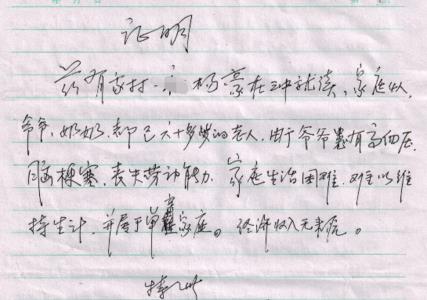 证明
兹有我村 杨豪在三中就读，家庭以
爷爷，奶奶，都已六十多岁的老人，由于爷爷患有高血压
脑梗塞，丧失劳动能力，家庭生活困难，难以维
持生计，并属于单亲家庭。经济收入无来源。
特此